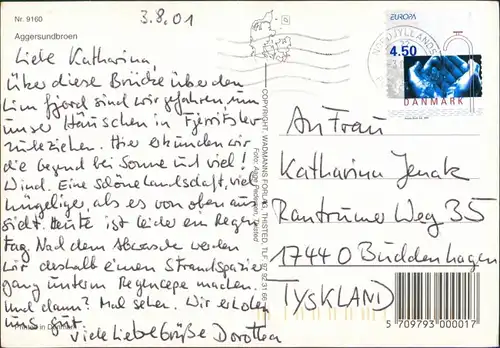 Nr. 9160
Aggersundbroen
3.8.01
Liebe Katharina,
Über diese Brücke über den
Limfjord sind wir gefahren, um
unser Häuschen in Fjerritslev
zu beziehen. Hier erkunden wir
die Gegend bei Sonne und viel!
Wind. Eine schöne Landschaft, viel
hügeliger, als es von oben aus
sieht. Heute ist leider ein Regen
tag. Nach dem Abwasch werden
wir deshalb einen Strandspazier
gang unterm Regencape machen.
Und dann? Mal sehen. Wir erholen
uns gut.
Viele liebe Grüße Dorothea
Printed in Denmark
COPYRIGHT: WADMANNS FORLAG, THISTED, TLF. 97 92 31 66
Foto: Aage Pedersen, Thisted
NORDJYLLANDS
EUROPA
4.50
DANMARK
An Frau
Katharina Jenak
Rantrumer Weg 35
17440 Buddenhagen
TYSKLAND
5 709793 000017